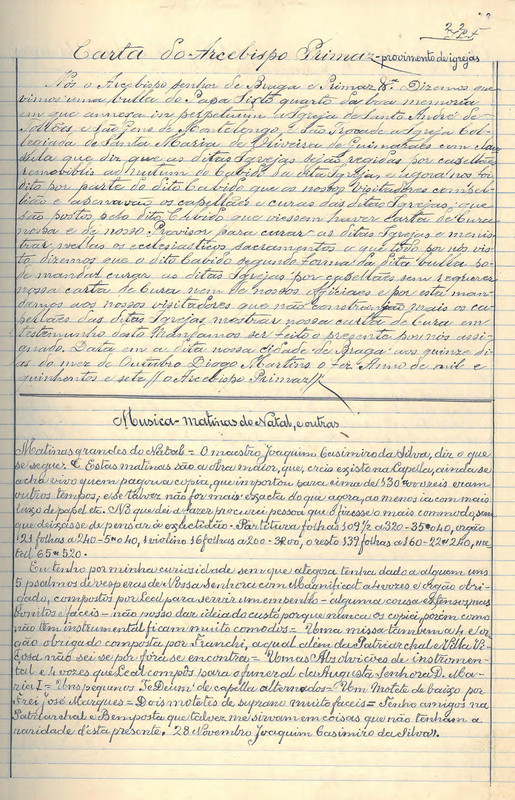 225
Carta do Arcebispo Primaz - provimento de igrejas
Nós o Arcebispo senhor de Braga e Primaz &ª. Dizemos que
vimos uma bulla do Papa Sisto quarto da boa memoria
em que annexa in perpetuum a Igreja de Santo André de
Tollões e São Gens de Montelongo, e São á Igreja Col-
legiada de Santa Maria de Oliveira de Guimarães com clau-
sula que diz que as ditas Igrejas sejão regidas por capellães
removibiles ad nutum do Cabido da dita Igreja, e agora nos foi
dito por parte do dito Cabido que os nossos Visitadores
e os capellães e curas das ditas Igrejas, que
são postos pelo dito Cabido que viessem haver carta de Cura
nossa e de nosso Provisor para curar as ditas Igrejas e menis-
trar nellas os ecclesiasticos sacramentos o que tudo por nós vis-
to diremos que o dito Cabido segundo forma da dita bulla po-
de mandar curar as ditas Igrejas por capellães sem requerer
nossa carta de Cura nem de nossos officiaes e por esta man-
damos aos nossos visitadores que não constranjão mais os ca-
pellães das ditas Igrejas mostrar nossa carta de Cura em
testemunho desto Mandamos ser feito o presente por nós assi-
gnado. Data em a dita nossa cidade de Braga aos quinze di-
as do mez de Outubro Diogo Martins o fez Anno de mil e
quinhentos e sete // o Arcebispo Primaz //
Musica - matinas do Natal, e outras
Matinas grandes do Natal = O maestro Joaquim Casimiro da Silva, diz o que
se segue: Estas matinas são a obra maior, que, creio existe na Capella, ainda se
acha vivo quem pagou a copia, que importou para cima de 130 $000 reis eram
outros tempos, esse talvez não for mais exacta do que agora, ao menos ia com mais
luxo de papel etc. Nº que dei a fazer procurei pessoa que o fizesse o mais commodo, sem
que deixasse de pensar á exactidão. Partitura folhas 109½ a 320 - 35$040, orgão
121 folhas a 240 - 5$040, 1 violino 16 folhas a 200 - 3$200, o resto 139 folhas a 160 - 22$240, me-
tal 65$520.
Eu tenho por minha curiosidade sem que ategora tenha dado a alguem uns
5 psalmos de vesperas de Nossa Senhora com Magnificat a 4 vozes e orgão obri-
gado, compostos por Leal para servir um em senho - alguma cousa extensos, mas
bonitos e faceis - não posso dar ideia do custo porque nunca os copiei, porem como
não têm instrumental ficam muito comodos = Uma missa tambem a 4 e or-
gão obrigado composta por Franchi, a qual alem da Patriarchal e Villa Vi-
çosa não sei se por fóra se encontra = Umas Absolvições de instrumen-
tal e 4 vozes que Leal compôs para o funeral da Augusta Senhora D. Ma-
ria I = Uns segundos Te Deum de capella alternados = Um Motete de baixo por
Frei José Marques = Dois motetes de suprano muito faceis = Tenho amigos na
Patriarchal e Bemposta que talvez me sirvam em coisas que não tenham a
raridade d'esta presente. 28 Novembro Joaquim Casimiro da Silva.